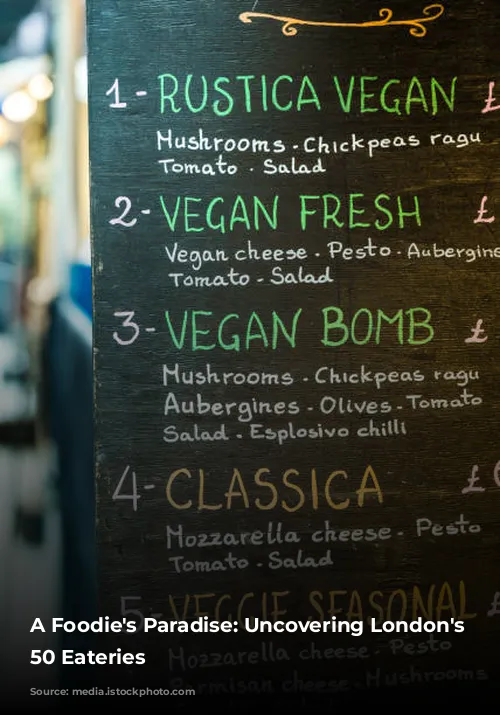 1 - RUSTICA VEGAN £
Mushrooms . Chickpeas ragu
Tomato . Salad
2 - VEGAN FRESH £
Vegan cheese . Pesto . Aubergine
Tomato - Salad
3 - VEGAN BOMB £
Mushrooms . Chickpeas ragu
Aubergines . Olives . Tomato
Salad . Esplosivo chilli
4 - CLASSICA £
Mozzarella cheese . Pesto
Tomato - Salad
5 - VEGGIE SEASONAL £
A Foodie's Paradise: Uncovering London's
50 Eateries
Mozzarella cheese . Pesto
Parmisan cheese . Mushrooms
Source: media.istockphoto.com